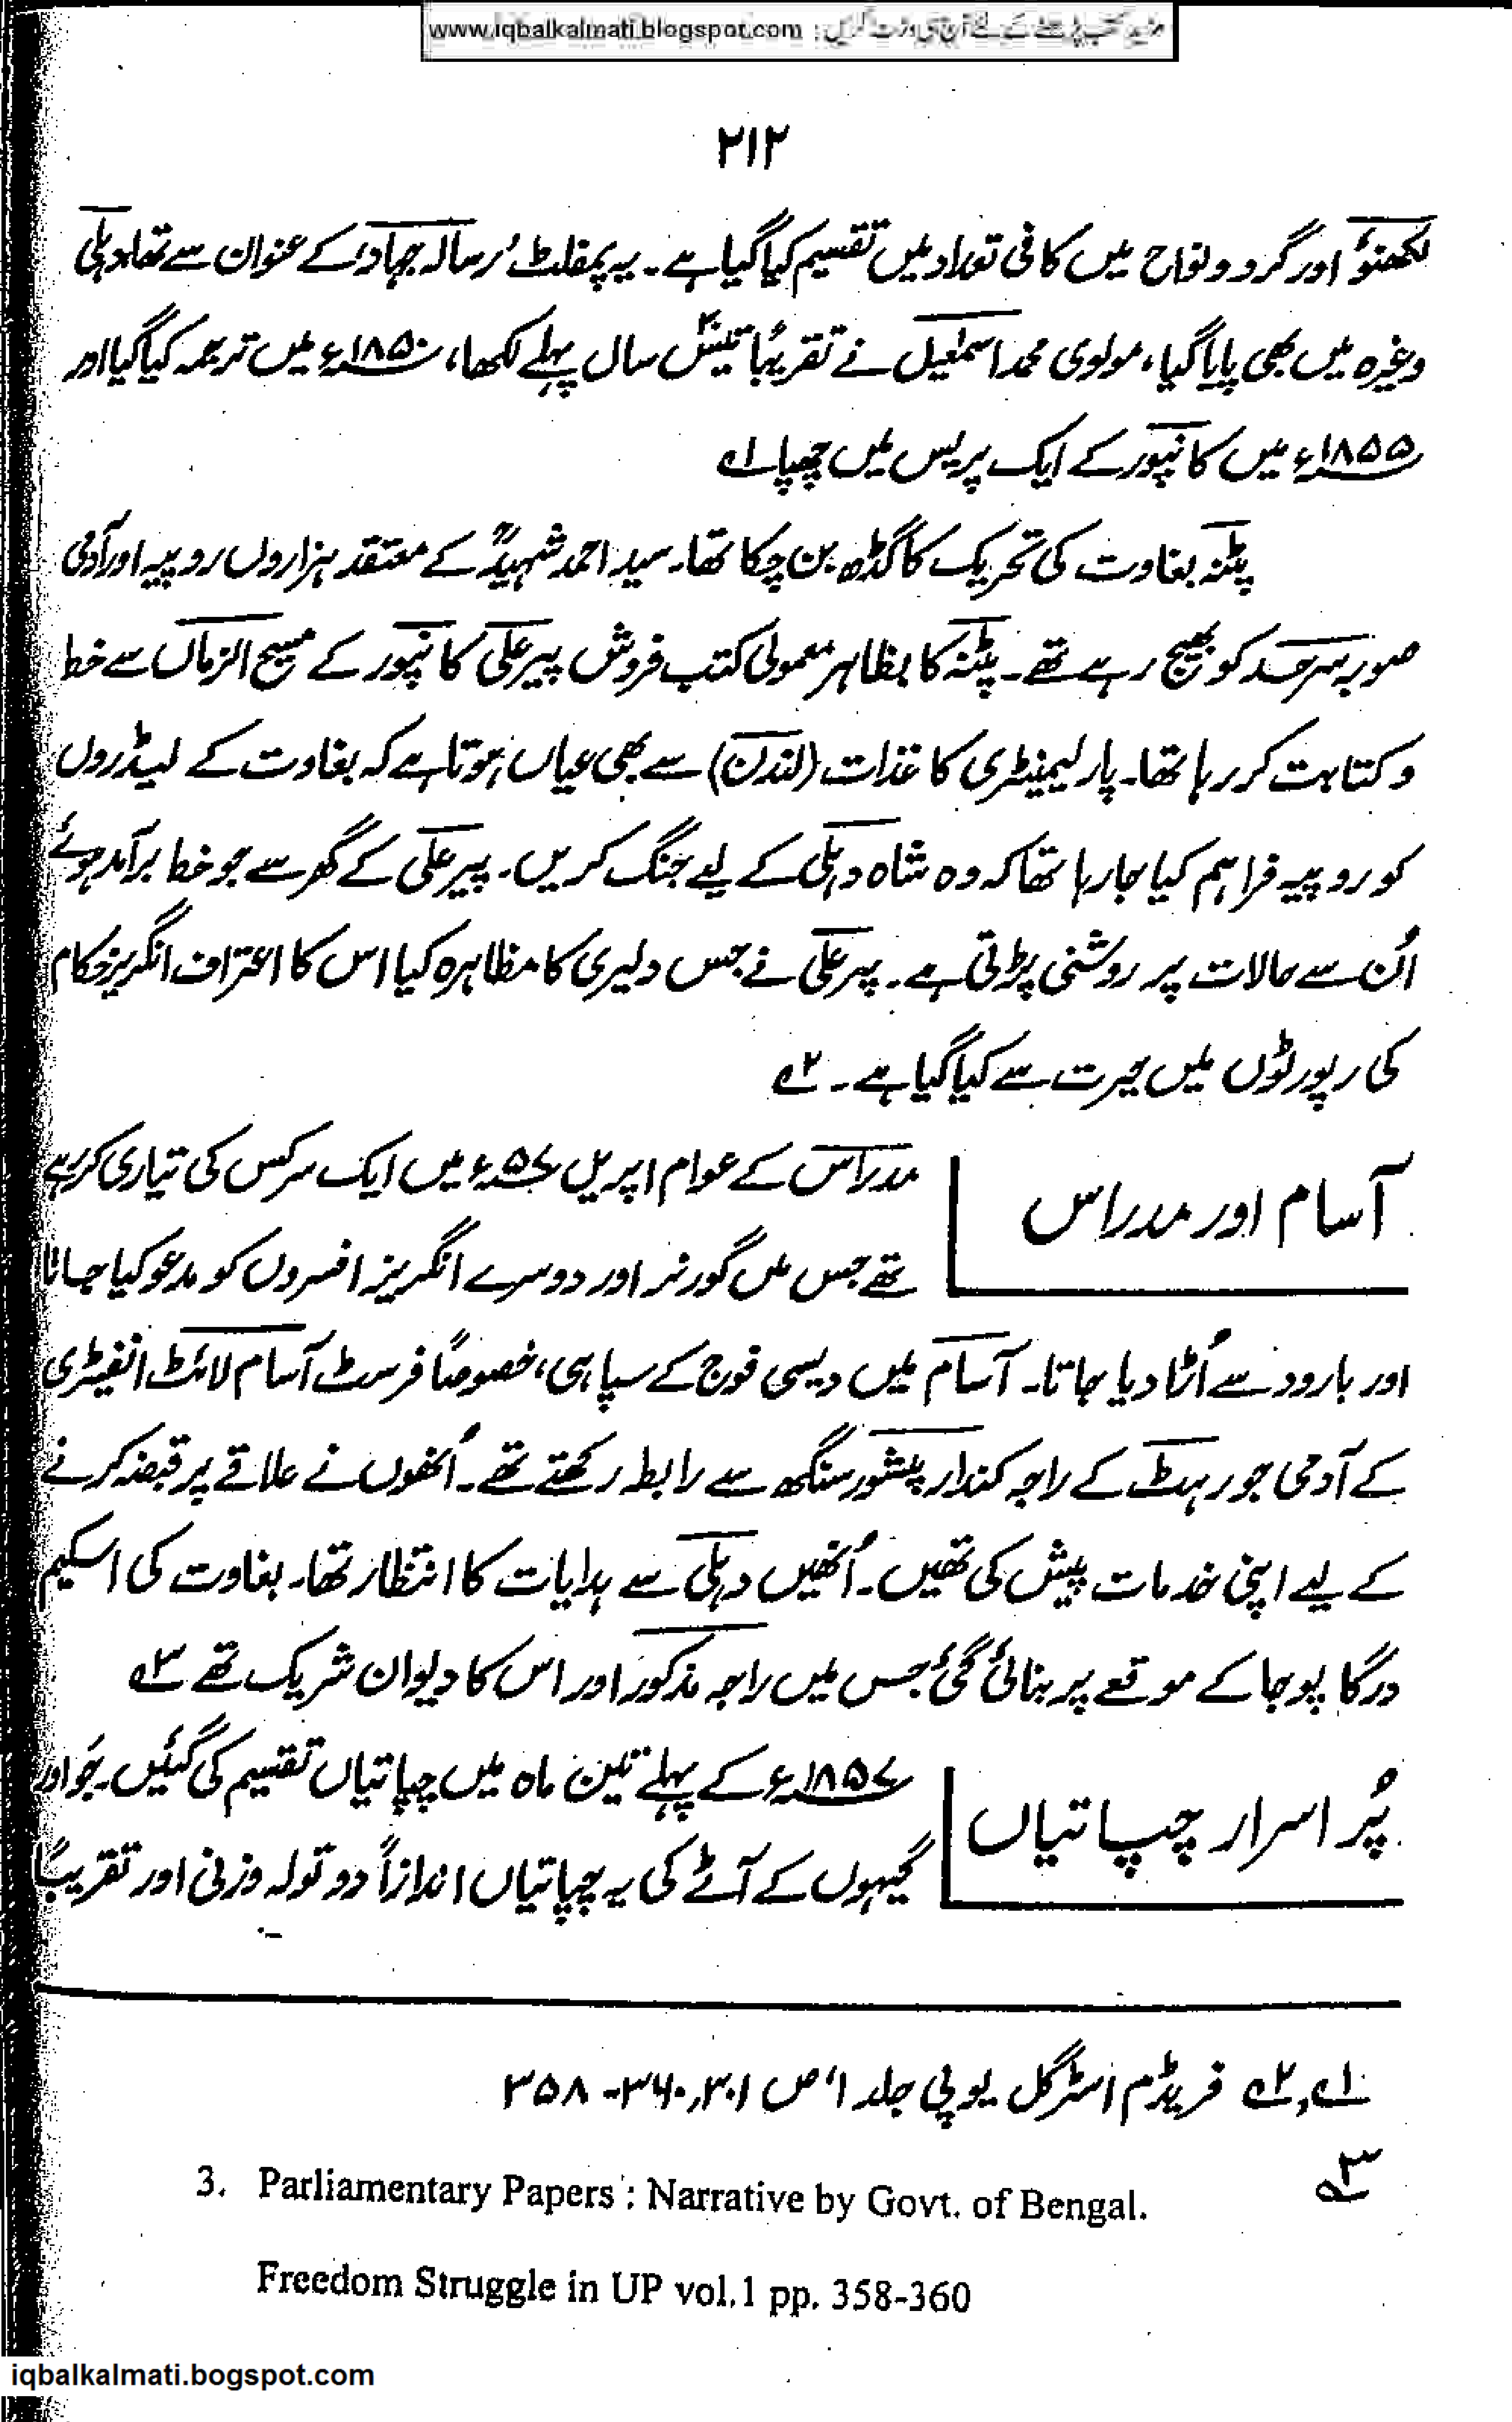 www.iqbalkalmati.blogspot.com : مزید کتب پڑھنے کے لئے آج ہی وزٹ کریں
۲۱۲
لکھنؤ اور گرد و نواح میں کافی تعداد میں تقسیم کیا گیا ہے۔ یہ پمفلٹ ’رسالہ جہاد‘ کے عنوان سے تھا، دہلی
وغیرہ میں بھی پایا گیا، مولوی محمد اسمٰعیل نے تقریباً تیس سال پہلے لکھا، ۱۸۵۰ء میں ترجمہ کیا گیا اور
۱۸۵۵ء میں کانپور کے ایک پریس میں چھپا ۱ے
پٹنہ بغاوت کی تحریک کا گڈھ بن چکا تھا۔ سید احمد شہیدؒ کے معتقد ہزاروں روپیہ اور آدمی
صوبہ سرحد کو بھیج رہے تھے۔ پٹنہ کا بظاہر معمولی کتب فروش پیر علی کانپور کے مسیح الزماں سے خط
و کتابت کر رہا تھا۔ پارلیمینٹری کاغذات (لندن) سے بھی عیاں ہوتا ہے کہ بغاوت کے لیڈروں
کو روپیہ فراہم کیا جا رہا تھا کہ وہ شاہ دہلی کے لیے جنگ کریں۔ پیر علی کے گھر سے جو خط برآمد ہوئے
اُن سے حالات پر روشنی پڑتی ہے۔ پیر علی نے جس دلیری کا مظاہرہ کیا اس کا اعتراف انگریز حکام
کی رپورٹوں میں حیرت سے کیا گیا ہے۔ ۲ے
آسام اور مدراس
مدراس کے عوام اپریل ۵۷ء میں ایک سرکس کی تیاری کر رہے
تھے جس میں گورنر اور دوسرے انگریز افسروں کو مدعو کیا جاتا
اور بارود سے اُڑا دیا جاتا۔ آسام میں دیسی فوج کے سپاہی، خصوصاً فرسٹ آسام لائٹ انفینٹری
کے آدمی جورہٹ کے راجہ کندار پیشور سنگھ سے رابطہ رکھتے تھے۔ اُنھوں نے علاقے پر قبضہ کرنے
کے لیے اپنی خدمات پیش کی تھیں۔ اُنھیں دہلی سے ہدایات کا انتظار تھا۔ بغاوت کی اسکیم
درگا پوجا کے موقعے پر بنائی گئی جس میں راجہ مذکور اور اس کا دیوان شریک تھے ۳ے
پُر اسرار چپاتیاں
۱۸۵۷ء کے پہلے تین ماہ میں چپاتیاں تقسیم کی گئیں۔ جَو اور
گیہوں کے آٹے کی یہ چپاتیاں اندازاً دو تولہ وزنی اور تقریباً
۱ے، ۲ے فریڈم اسٹرگل یوپی جلد ۱، ص ۳۰۱، ۳۶۰-۳۵۸
۳ے
3. Parliamentary Papers : Narrative by Govt. of Bengal.
Freedom Struggle in UP vol.1 pp. 358-360
iqbalkalmati.bogspot.com